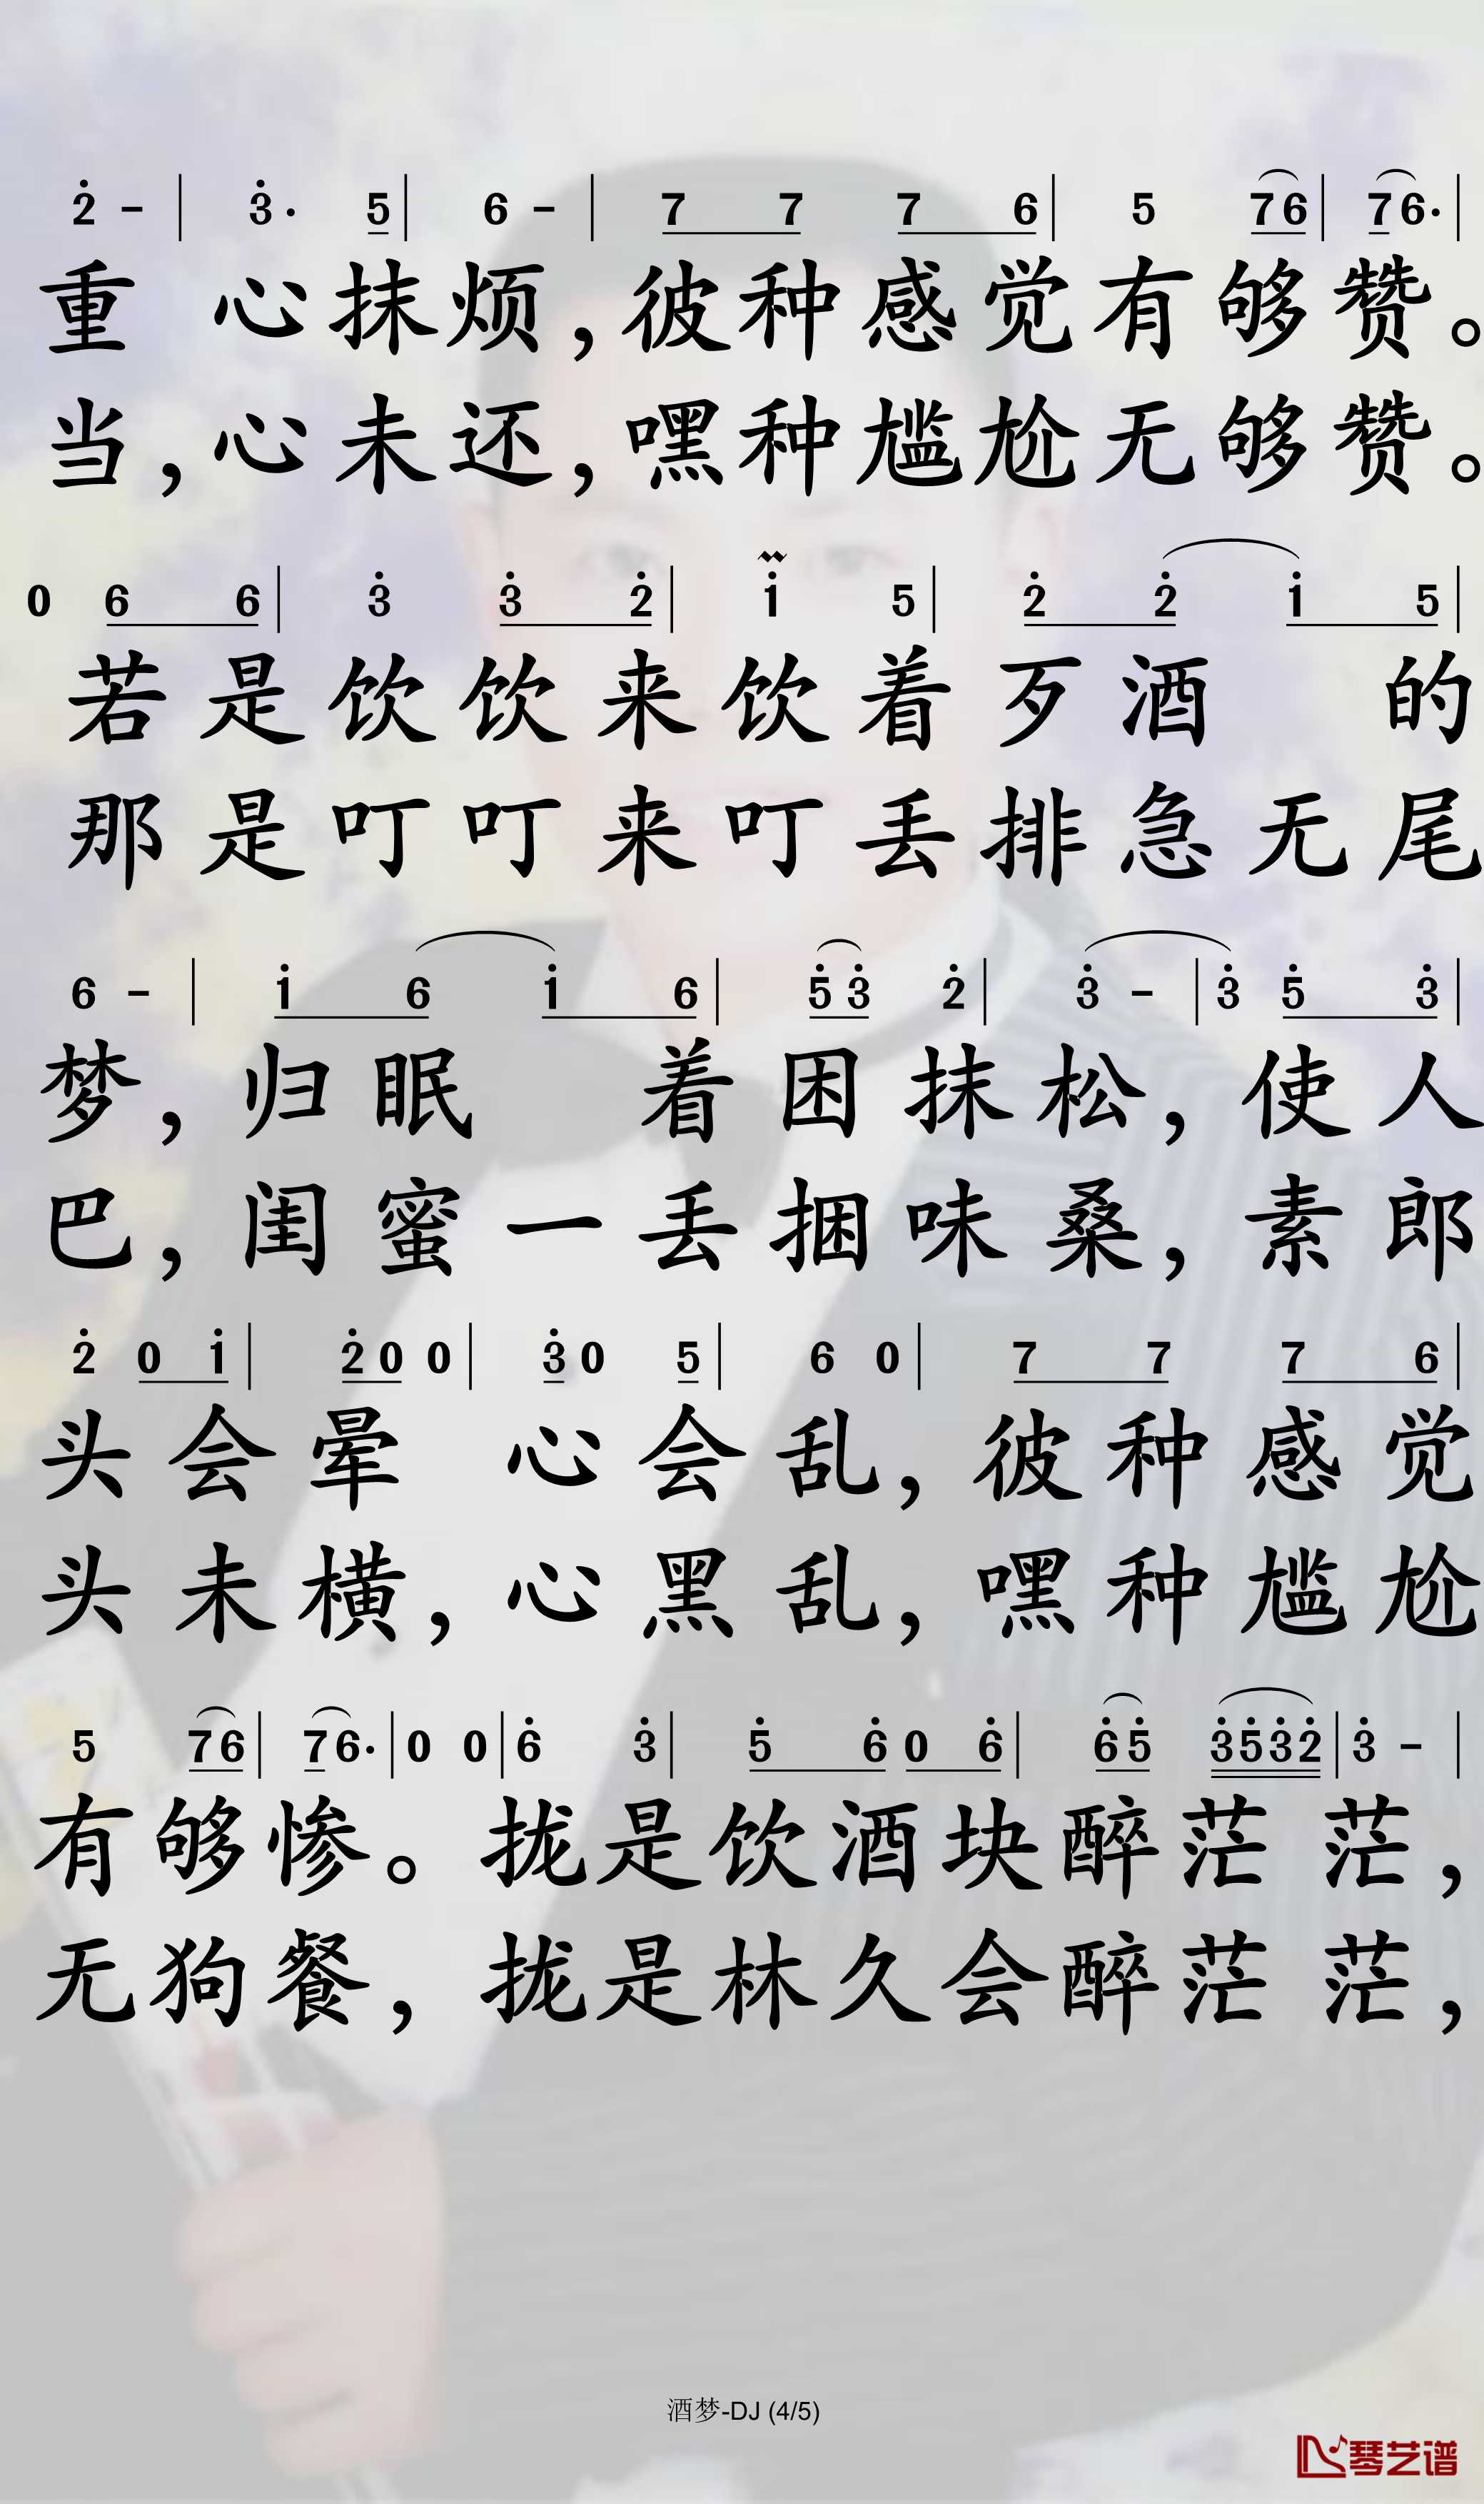 2̇ - | 3̇· 5 | 6 - | 7 7 7 6 | 5 76 | 76· |
重 心抹烦，彼种感觉有够赞。
当，心未还，嘿种尴尬无够赞。
0 6 6 | 3̇ 3̇ 2̇ | 1̇ 5 | 2̇ 2̇ 1̇ 5 |
若是饮饮来饮着歹酒 的
那是叮叮来叮丢排急无尾
6 - | 1̇ 6 1̇ 6 | 5̇3̇ 2̇ | 3̇ - | 3̇ 5̇ 3̇ |
梦，归眠 着困抹松，使人
巴，闺蜜一丢捆味桑，素郎
2̇ 0 1̇ | 2̇0 0 | 3̇0 5 | 6 0 | 7 7 7 6 |
头会晕 心会乱，彼种感觉
头未横，心黑乱，嘿种尴尬
5 76 | 76· | 0 0 | 6̇ 3̇ | 5̇ 6̇ 0 6̇ | 6̇5̇ 3̇5̇3̇2̇ | 3̇ - |
有够惨。拢是饮酒块醉茫 茫，
无狗餐，拢是林久会醉茫 茫，
酒梦-DJ (4/5)
琴艺谱